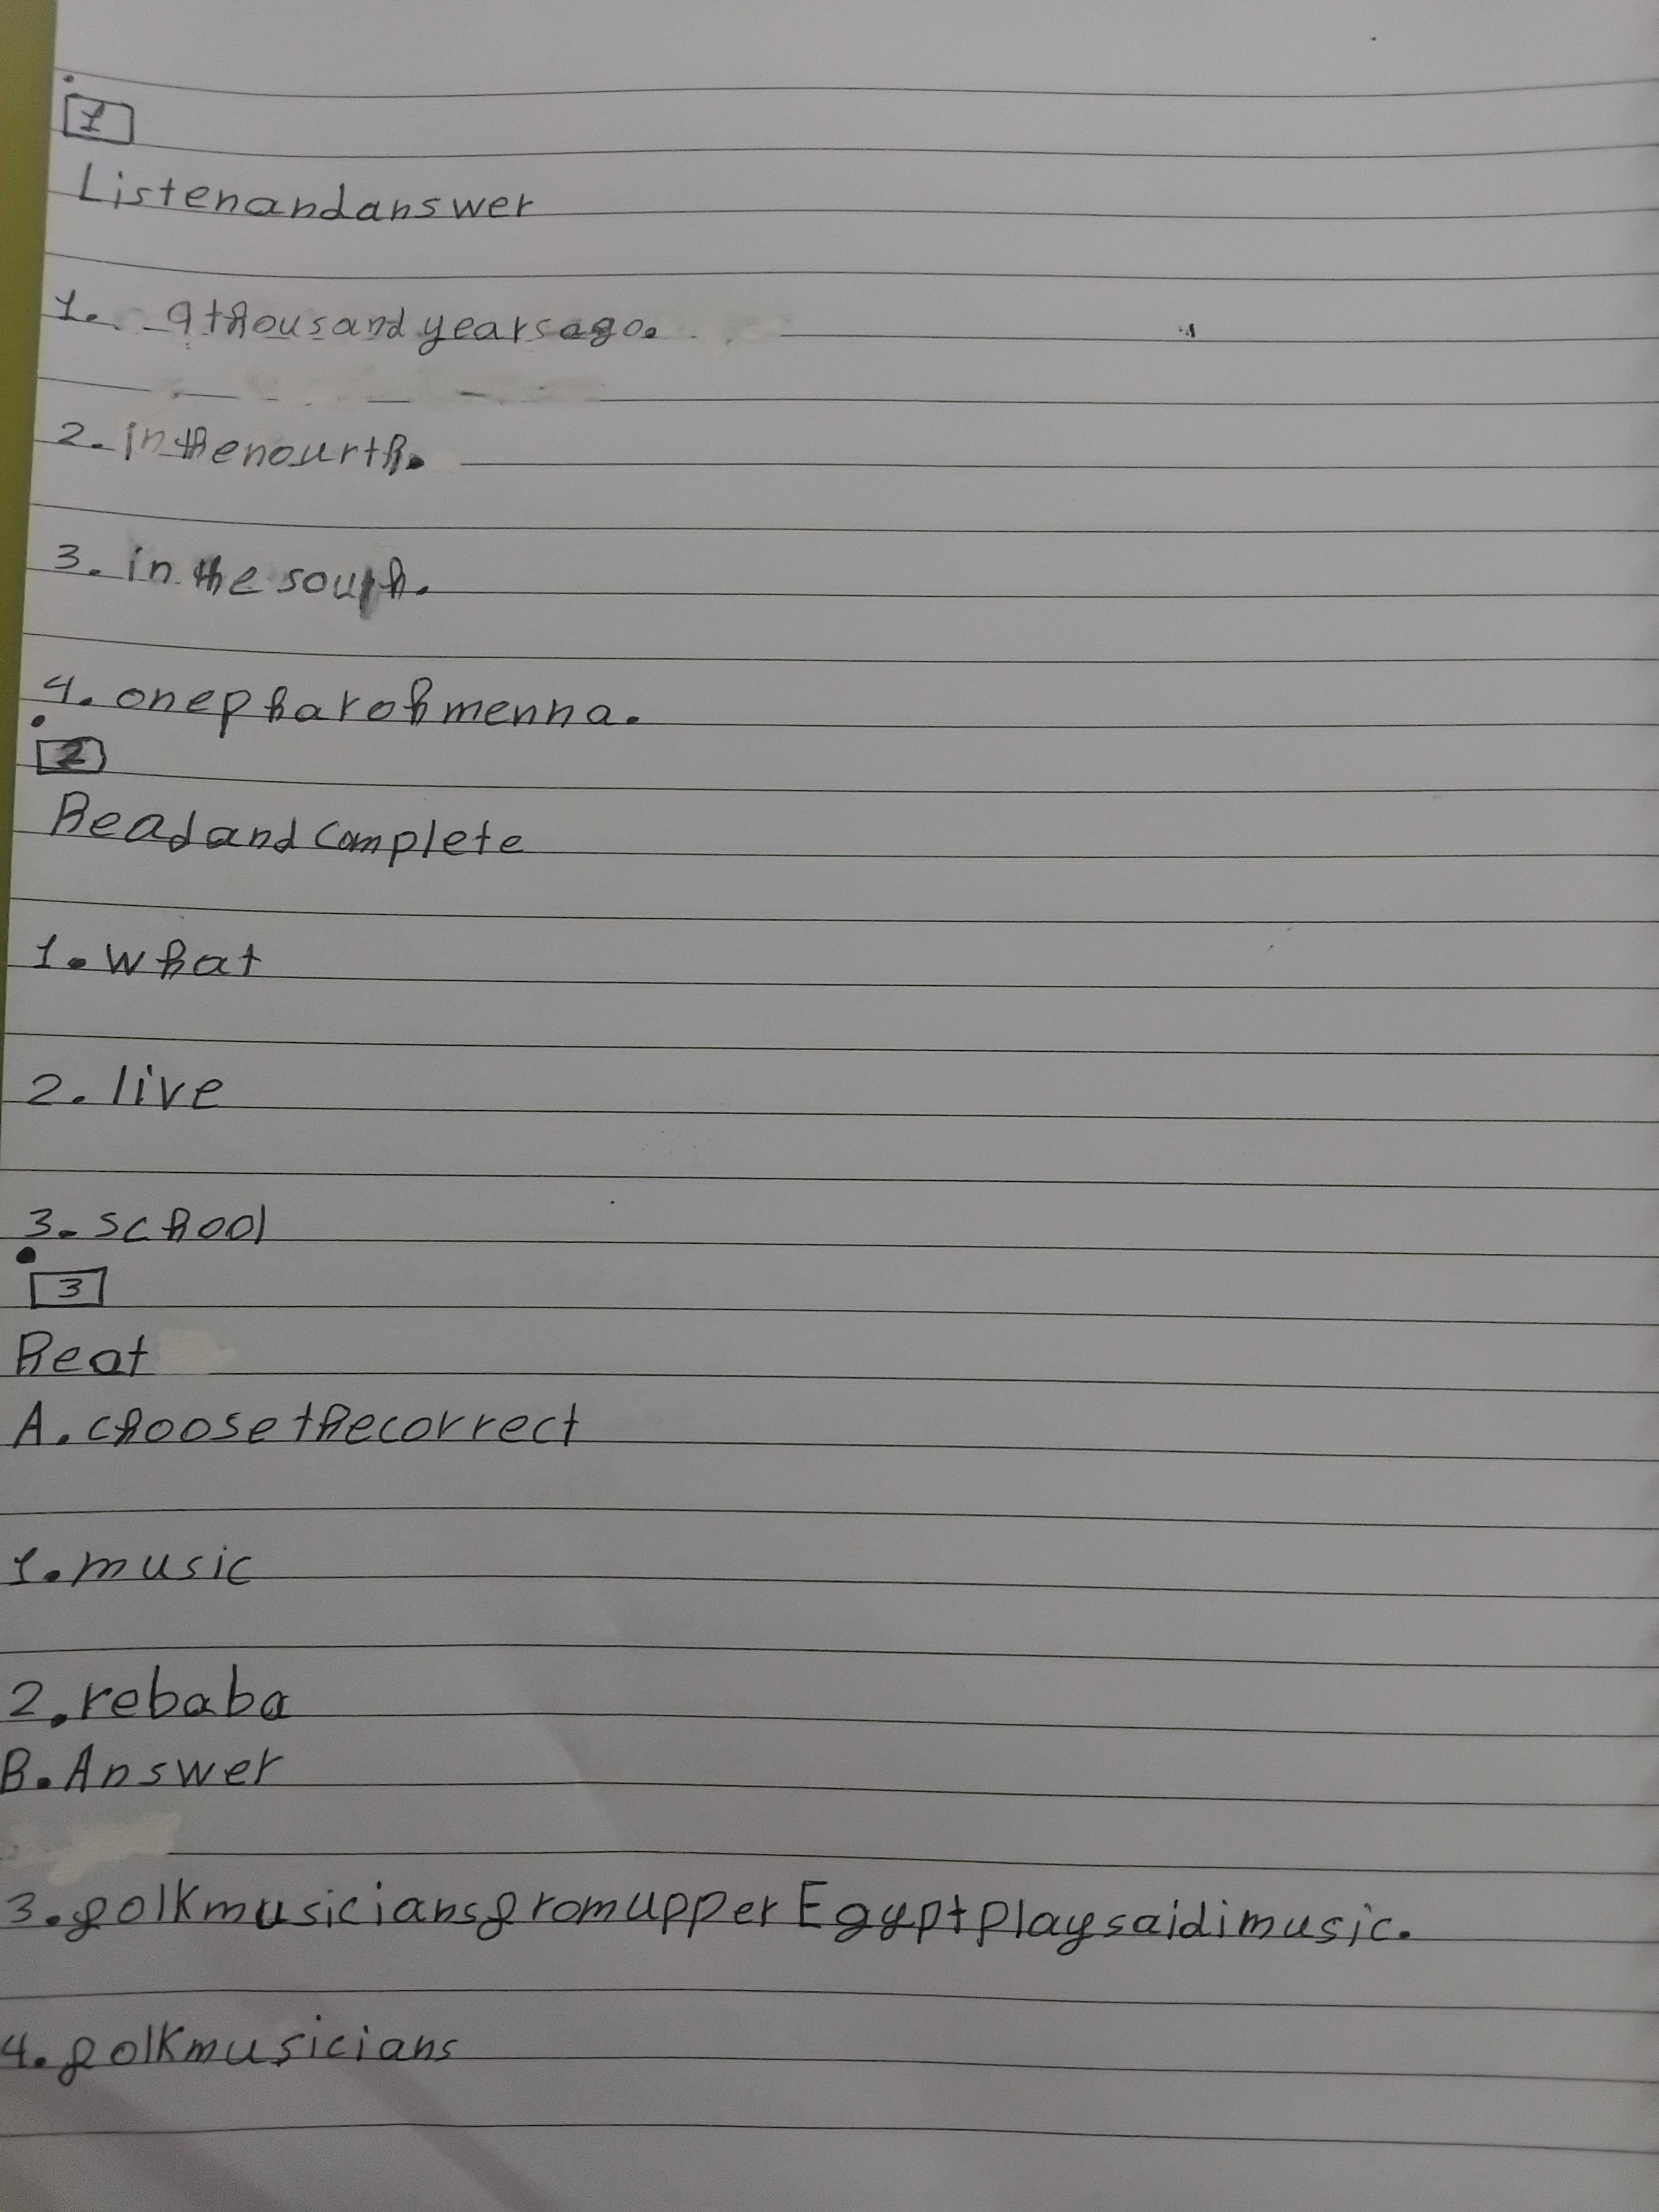 1
Listen and answer
1. a thousand years ago.
2. in the nourth.
3. in the south.
4. one pharoh menna.
2
Read and complete
1. what
2. live
3. school
3
Reat
A. choose the correct
1. music
2. rebaba
B. Answer
3. folk musicians from upper Egypt play saidi music.
4. folk musicians